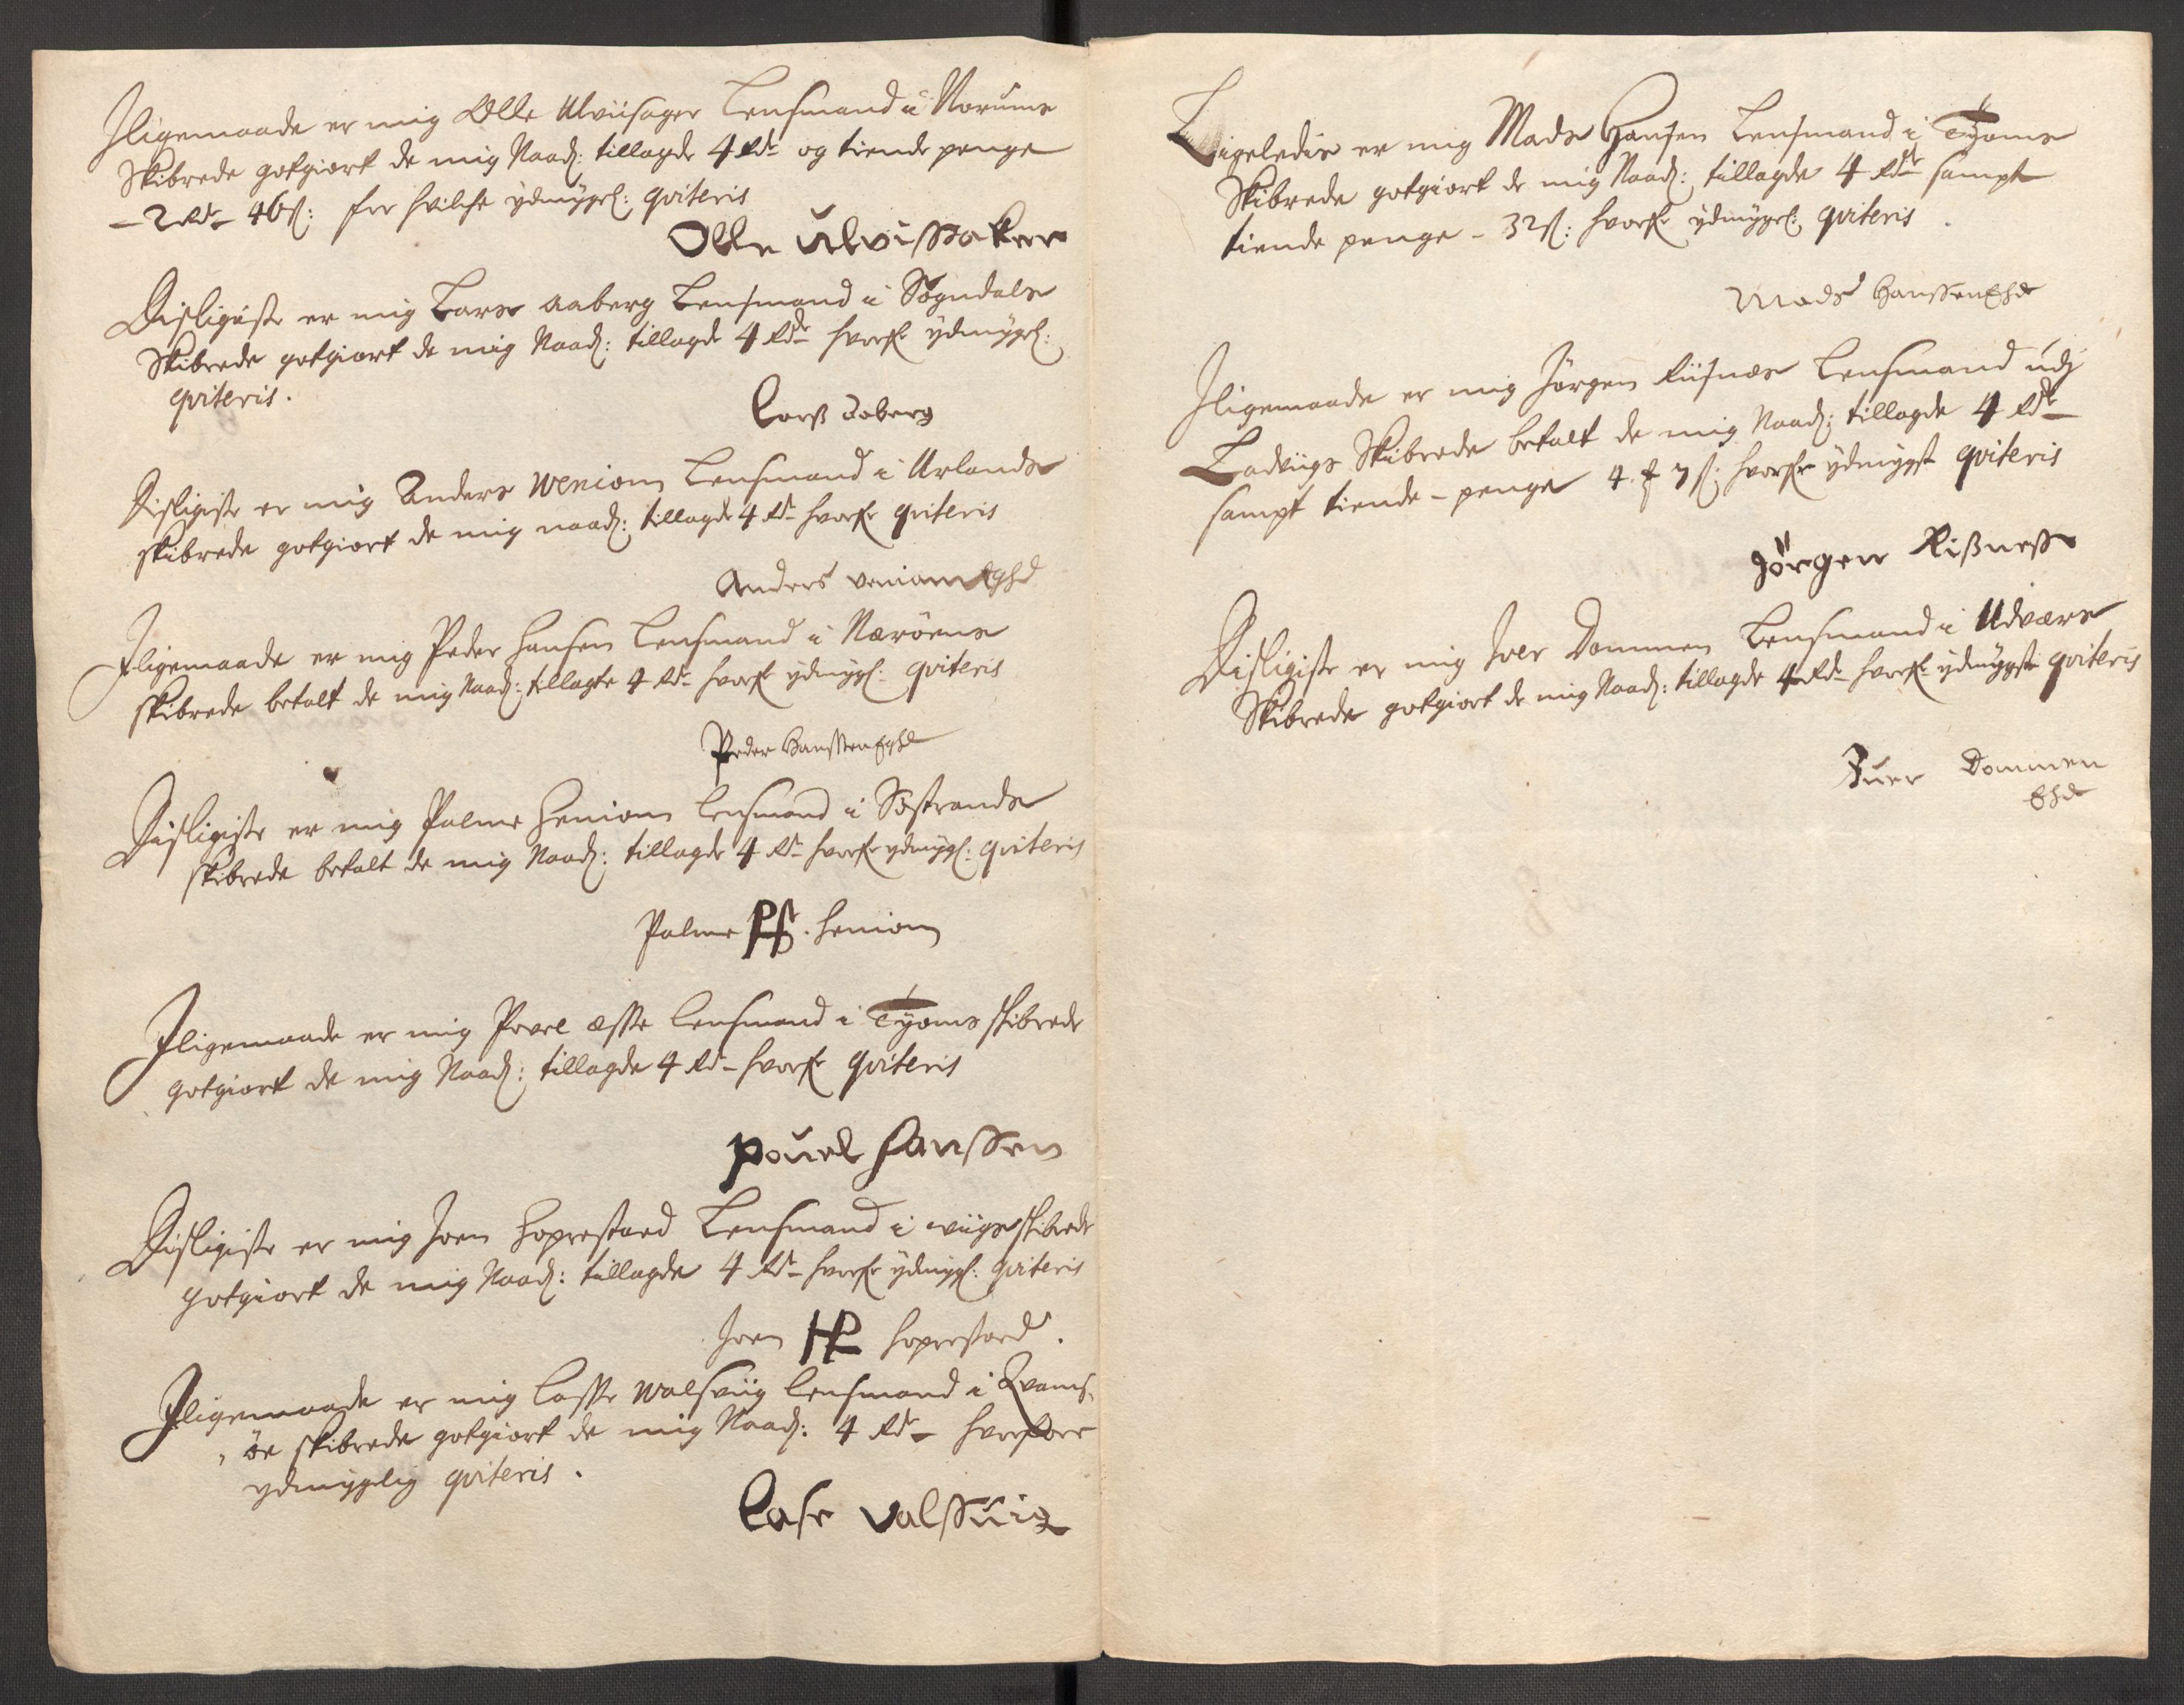 Jligemaade er mig Olle Ulviisager Lensmand i Norums
Skibrede gotgiort de mig Naad: tillagde 4 Rdr og tiende penge
- 2 Rdr - 46 s: for hvilche ydmygel: qviteris
Olle ulvissaker
Disligiste er mig Lars aaberg Lensmand i Sogndals
Skibrede gotgiort de mig Naad: tillagde 4 Rdr hvorfr ydmygel:
qviteris.
Larss aaberg
Disligiste er mig Anders Weniom Lensmand i Urlands
skibrede gotgiort de mig naad: tillagde 4 Rdr hvorfr qviteris
Anders veniom Eghd
Jligemaade er mig Peder Hansen Lensmand i Nærøens
skibrede betalt de mig Naad: tillagte 4 Rdr hvorfr ydmygl: qviteris
Peder Hanssen Eghd
Disligiste er mig Palme Heniom lensmand i Sostrands
skibrede betalt de mig Naad: tillagde 4 Rdr hvorfr ydmygl: qviteris
Palme heniom
Jligemaade er mig Povel æsse lensmand i Tyoms skibrede
gotgiort de mig Naad: tillagde 4 Rdr - hvorfr qviteris
Pouel Hanssen
Disligiste er mig Joen Hoprestad Lensmand i wiigs skibrede
gotgiort de mig Naad: tillagde 4 Rdr - hvorfr ydmygl: qviteris
Joen HP hoprestad.
Jligemaade er mig Lasse Walsviig lensmand i Qvams-
øe skibrede gotgiort de mig Naad: 4 Rdr - hvorforr
ydmygelig qviteris.
Lase valssuig
Ligeledis er mig Mads Hansen Lensmand i Tyoms
Skibrede gotgiort de mig Naad: tillagde 4 Rdr sampt
tiende penge - 32 s: hvorfr ydmygel: qviteris.
Mads Hanssen Ehd
Jligemaade er mig Jørgen Riisnæs Lensmand udj
Ladviigs Skibrede betalt de mig Naad: tillagde 4 Rdr
sampt tiende - penge 4 ₰ 7 s: hvorfr ydmygst qviteris
Jörgen Risness
Disligiste er mig Iver Dommen Lensmand i Udværs
Skibrede gotgiort de mig Naad: tillagde 4 Rdr hvorfr ydmygste qviteris
Juer Dommen
Ehd